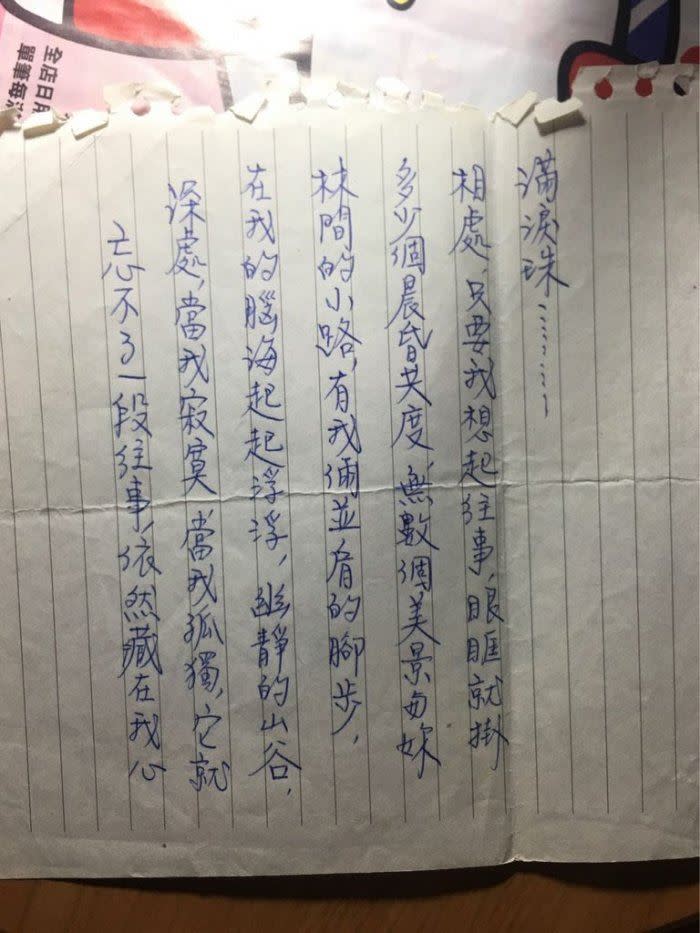 全店日
單筆每
忘不了一段往事,依然藏在我心
深處,當我寂寞 當我孤獨,它就
在我的腦海起起浮浮,幽靜的山谷,
林間的小路,有我倆並肩的腳步,
多少個晨昏共度 無數個美景与妳
相處,只要我想起往事,眼眶就掛
滿淚珠………